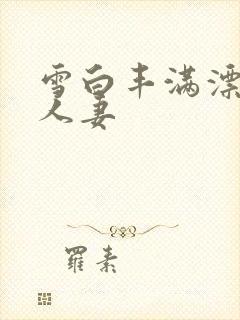 雪白丰满漂
人妻
羅素